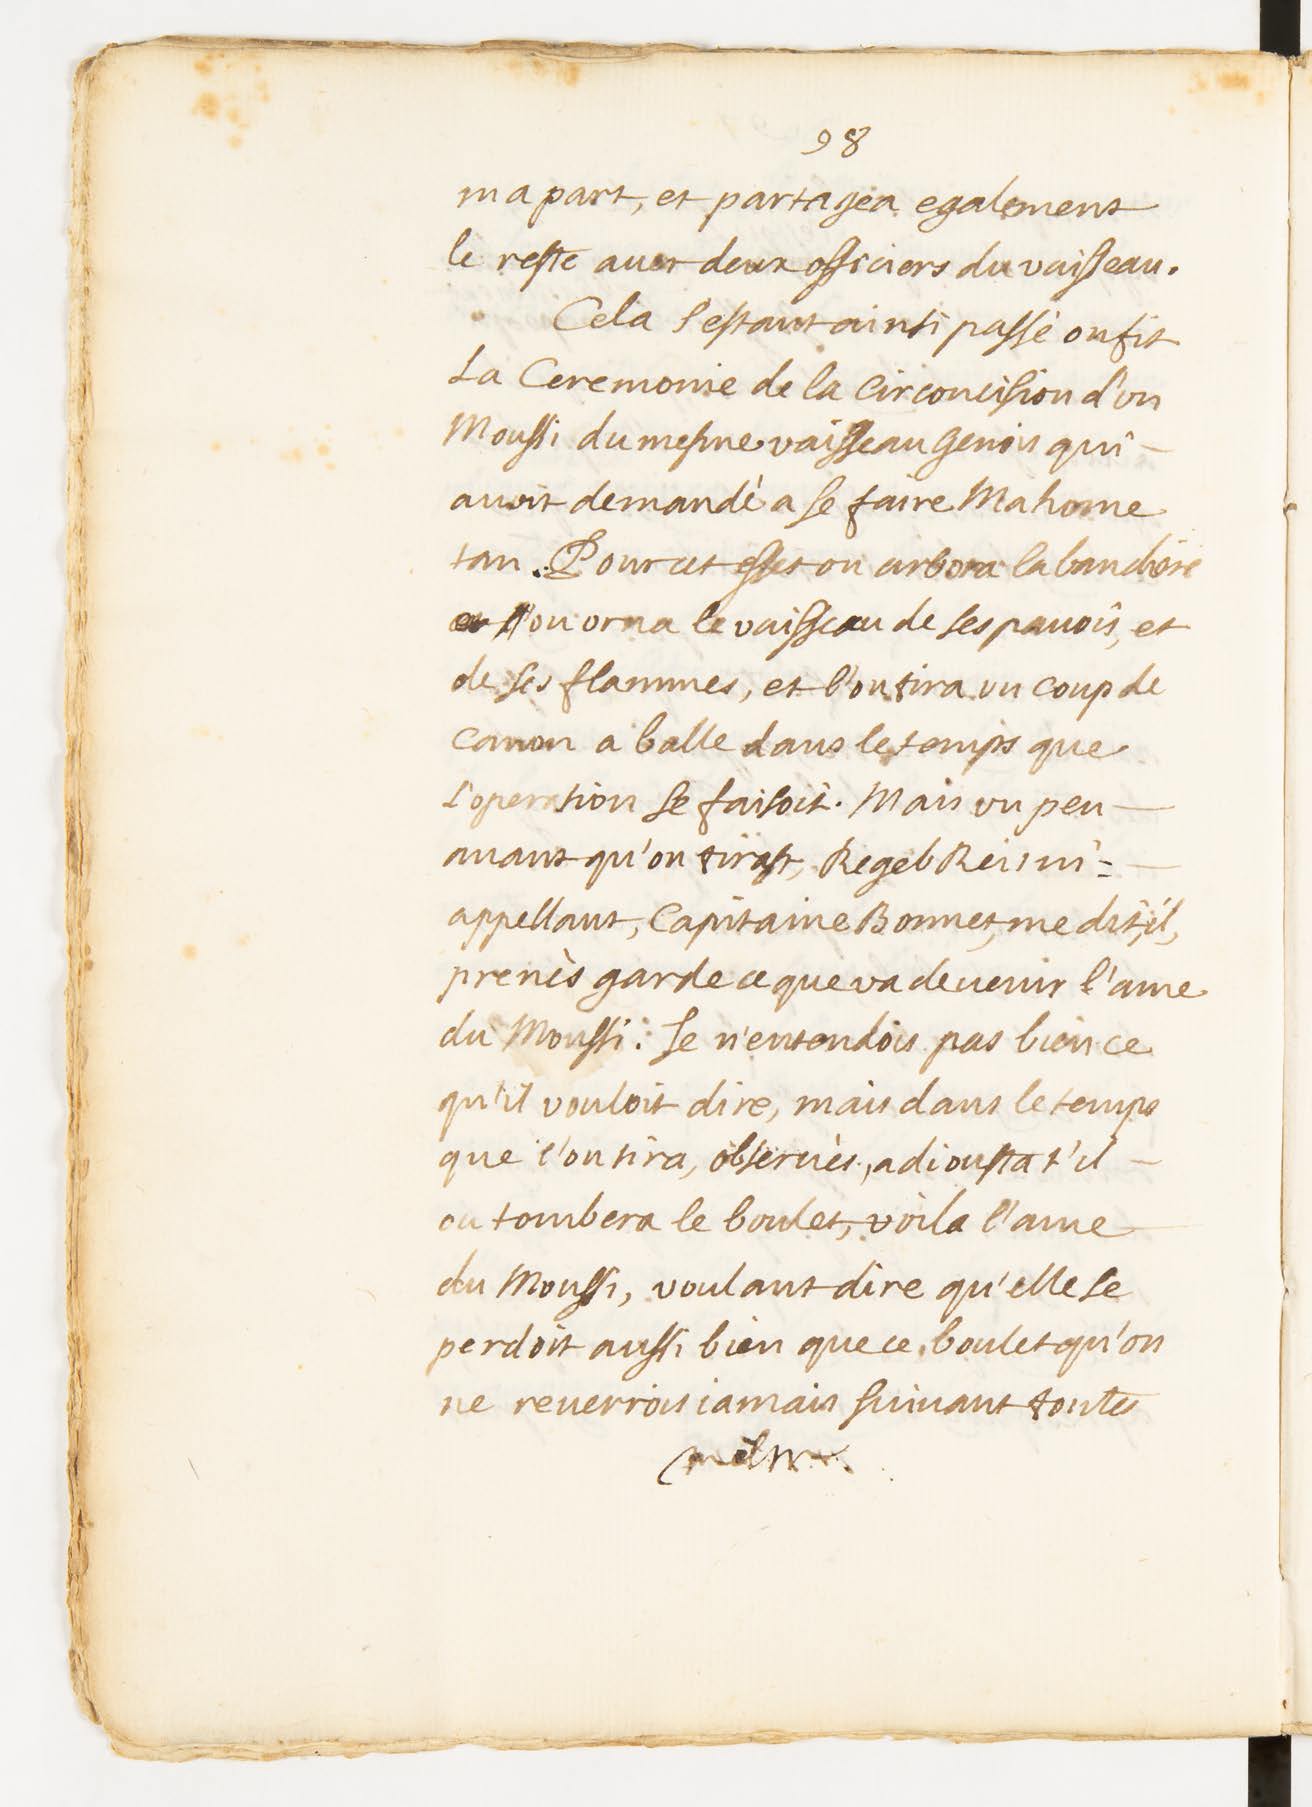 98
ma part, et partagea egalement
le reste auec deux officiers du vaisseau.
Cela s'estant ainsi passè on fit
La Ceremonie de la circoncision d'vn
Moussi du mesme vaisseau Genois qui
auoit demandè a se faire Mahome
tan. Pour cet effet on arbora la bandiere
l'on orna le vaisseau de ses pauois, et
de ses flammes, et l'on tira vn coup de
canon a balle dans le temps que
l'operation se faisoit. Mais vn peu
auant qu'on tirast, Regeb Reis m'=
appellant, Capitaine Bonnet, me dit, il,
prenès garde ce que va deuenir l'ame
du Moussi: Je n'entendois pas bien ce
qu'il vouloit dire, mais dans le temps
que l'on tira, obseruès, adiousta t'il
ou tombera le boulet, voila l'ame
du Moussi, voulant dire qu'elle se
perdoit aussi bien que ce boulet qu'on
ne reuerrois iamais suiuant toutes